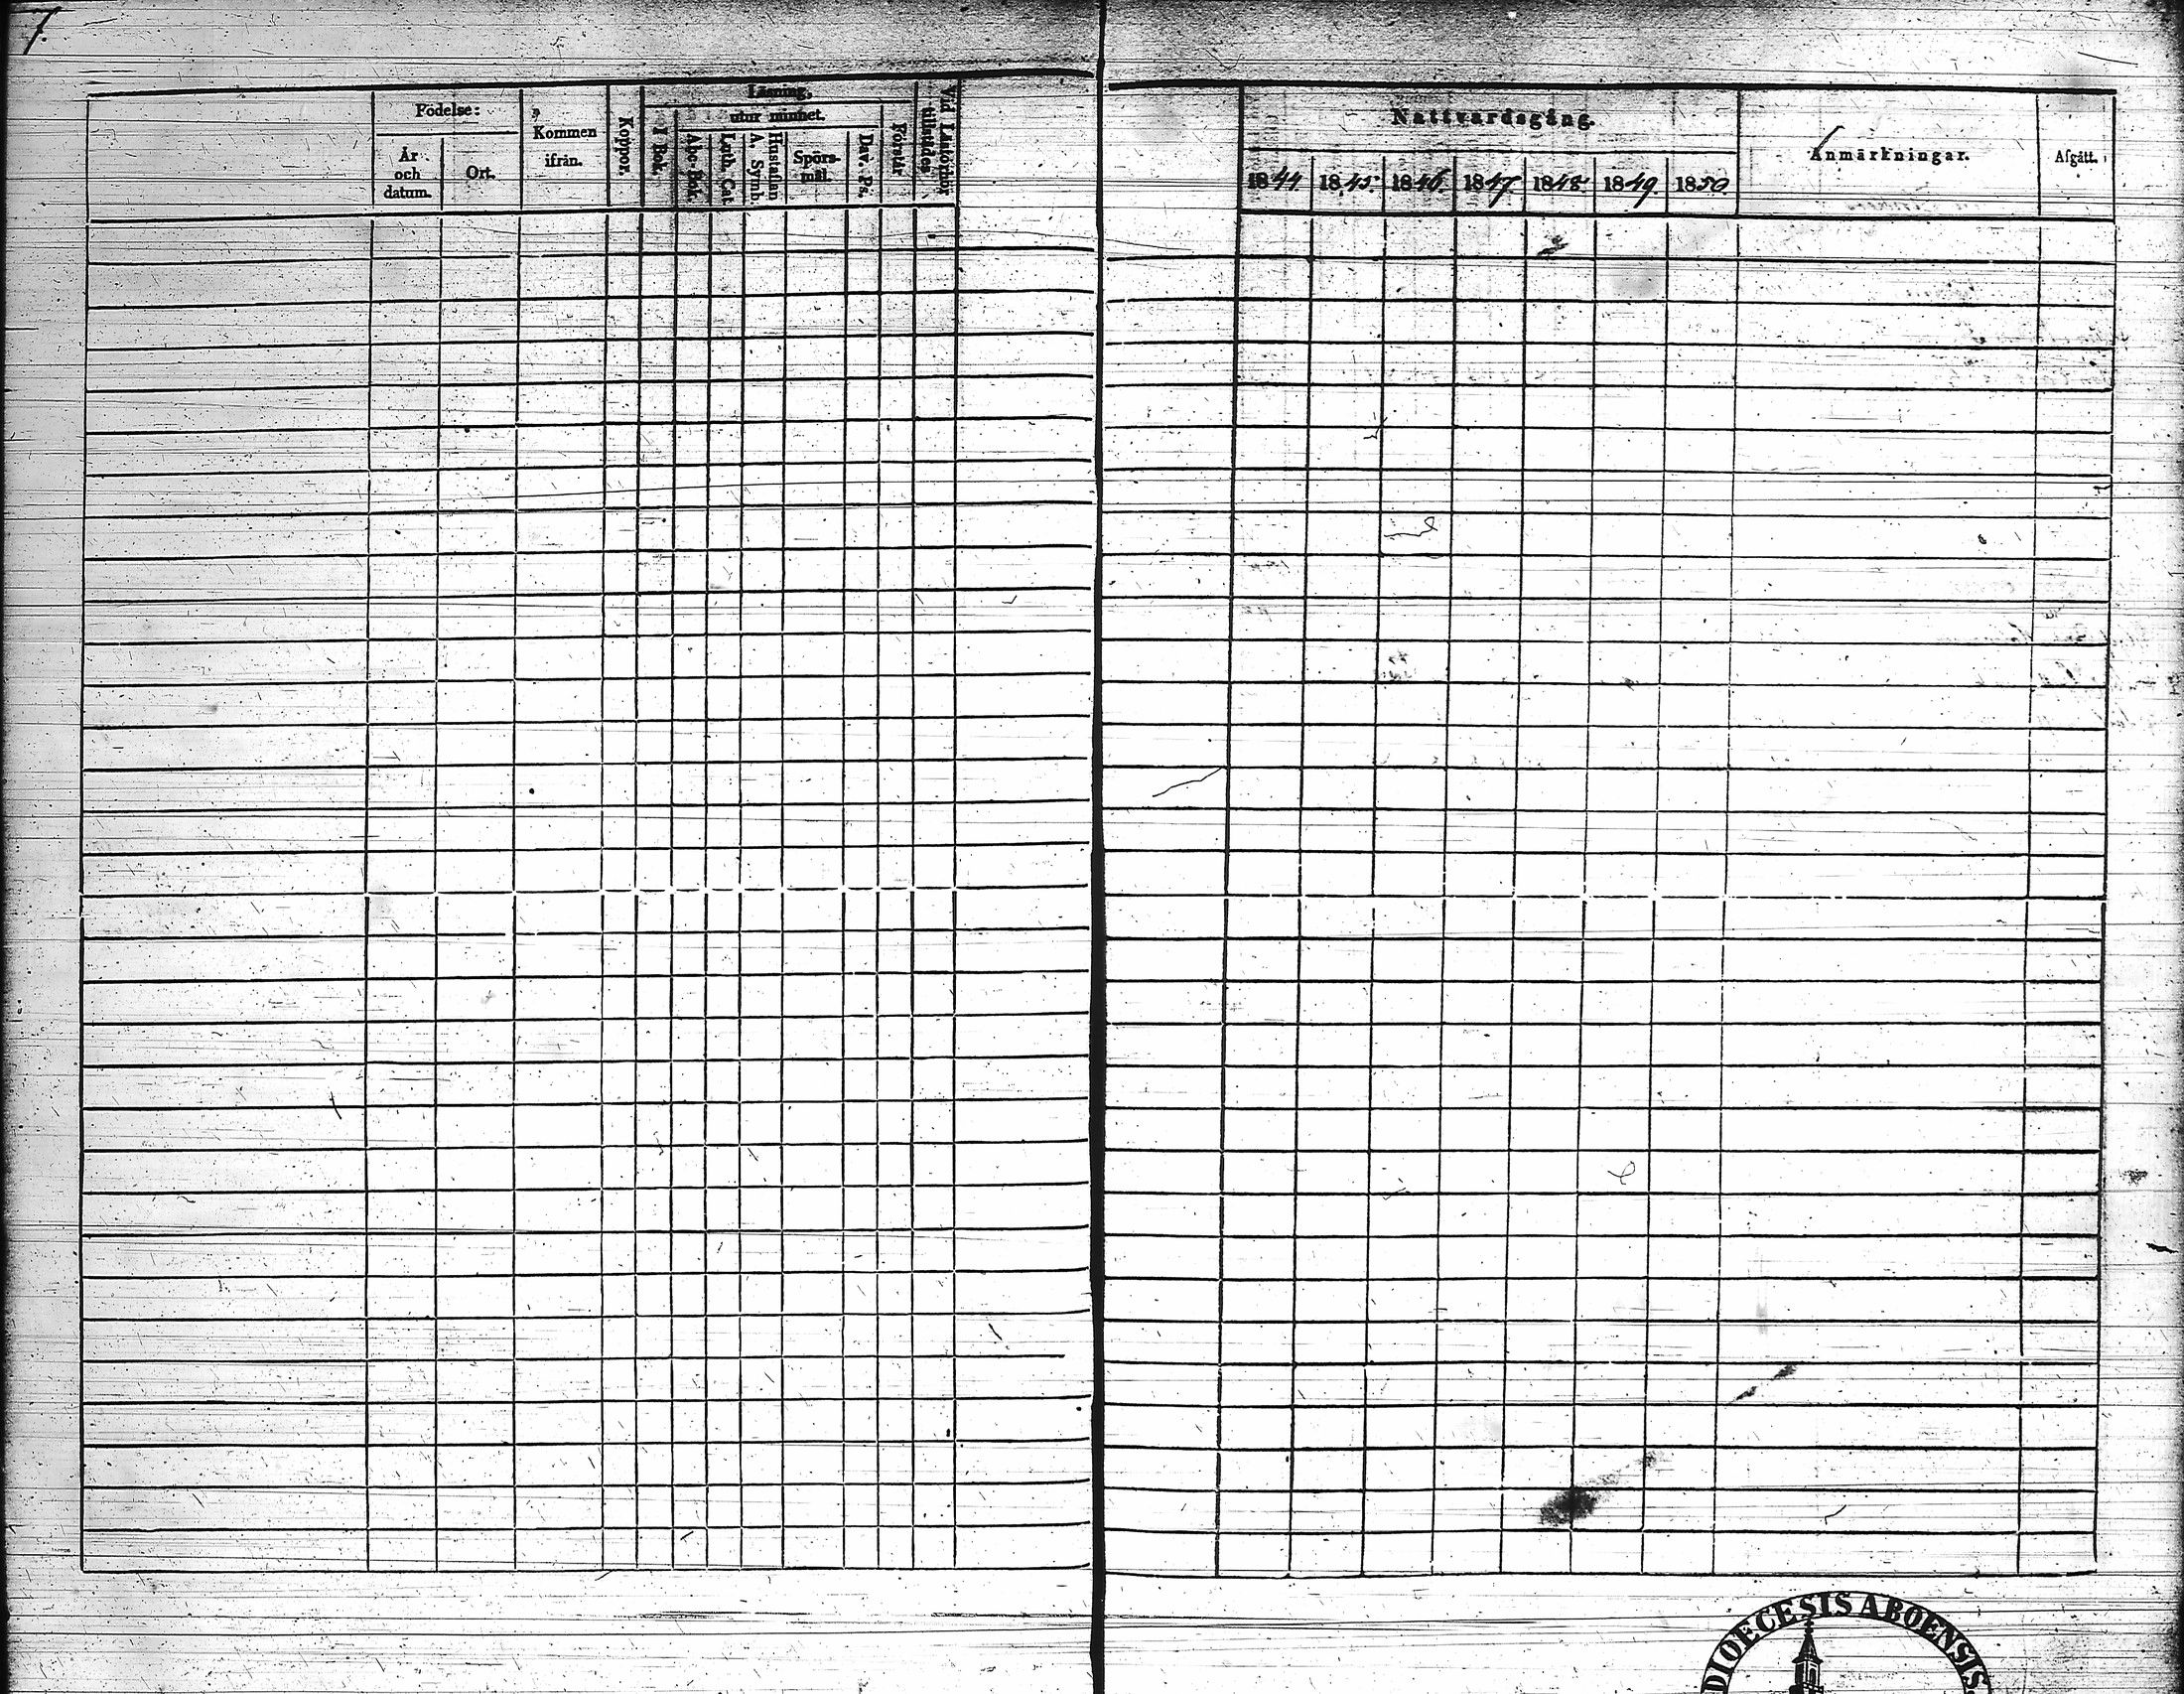 7.
Födelse:
År och datum.
Ort.
Kommen ifrån.
Koppor.
Läsning,
utur minnet.
I Bok.
Abc-Bok.
Luth. Cat.
A. Symb.
Hustaflan
Spörs-mål.
Dav. Ps.
Förstår
Vid Läsförhör tillstädes
Nattvardsgång.
1844 1845. 1846. 1847 1848 1849. 1850.
Anmärkningar.
Afgått.
DIOECESIS ABOENSIS